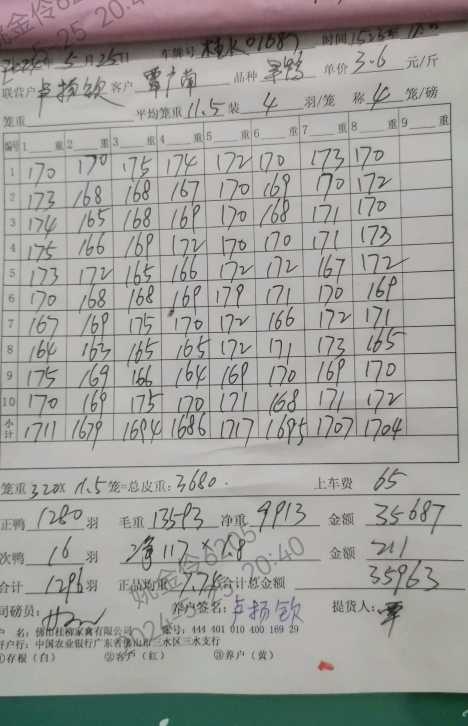 2024年5月25日 车牌号 桂K01687 时间
联营户 卢扬钦 客户 覃广南 品种 单价 3.6 元/斤
笼重 平均笼重 11.5 装 4 羽/笼 称 4 笼/磅
编号 1 重 2 重 3 重 4 重 5 重 6 重 7 重 8 重 9 重
1 170 170 175 174 172 170 173 170
2 173 168 168 167 170 169 170 172
3 174 165 168 169 170 168 171 170
4 175 166 169 172 170 170 171 173
5 173 172 165 166 172 172 167 172
6 170 168 168 169 179 171 170 169
7 167 169 175 170 172 166 172 171
8 164 163 165 165 172 171 173 165
9 175 169 166 164 169 170 169 170
10 170 169 175 170 171 168 171 172
小计 1711 1679 1694 1686 1717 1695 1707 1704
笼重 320 × 11.5 笼=总皮重: 3680. 上车费 65
正鸭 1280 羽 毛重 13593 净重 9913 金额 35687
次鸭 16 羽 净 117 × 1.8 金额 211
合计 1296 羽 正品均重 7.74 合计总金额 35963
司磅员: 养户签名: 卢扬钦 提货人: 覃
户 名: 佛山桂柳家禽有限公司 账号: 444 401 010 400 169 29
开户行: 中国农业银行广东省佛山市三水区三水支行
①存根（白） ②客户（红） ③养户（黄）
姚金伶6205
2024-5-25 20:40